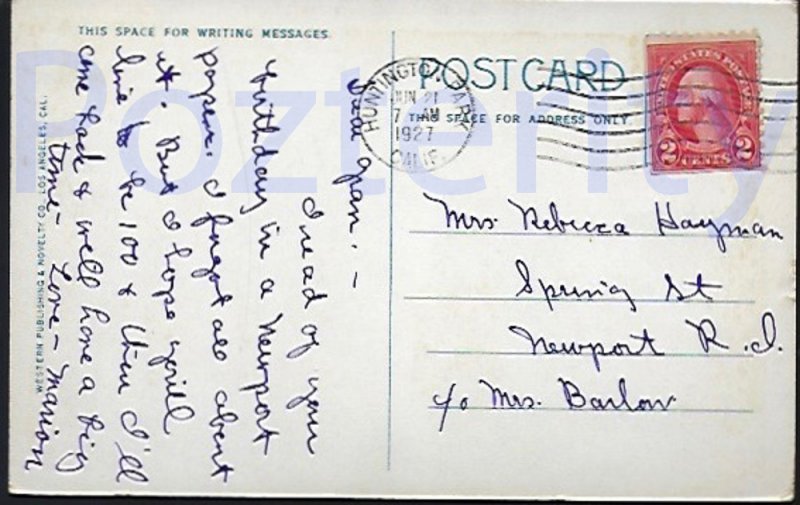 THIS SPACE FOR WRITING MESSAGES.
Dear Gran. —
I read of your
birthday in a Newport
paper. I forgot all about
it. But I hope you'll
live to be 100 & then I'll
come back & we'll have a big
time — Love — Marion
WESTERN PUBLISHING & NOVELTY CO., LOS ANGELES, CAL.
POST CARD
THIS SPACE FOR ADDRESS ONLY.
HUNTINGTON PARK
JUN 21
7 AM
1927
CALIF.
UNITED STATES POSTAGE
2 CENTS 2
Mrs Rebecca Hayman
Spring St
Newport R.I.
c/o Mrs. Barlow
Pozterity